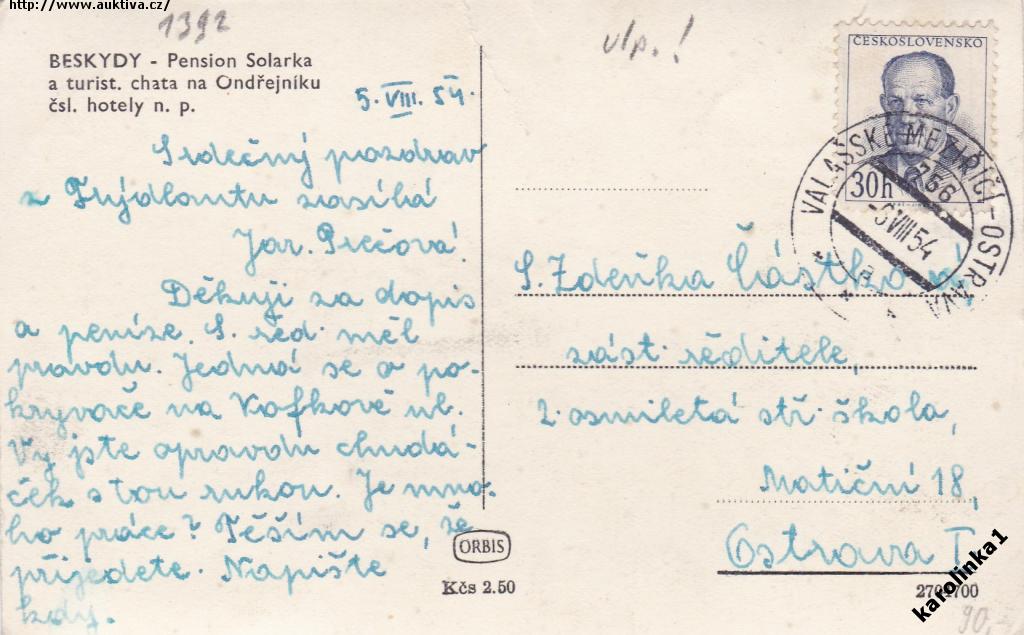 http://www.auktiva.cz/
1392
vlp.!
BESKYDY - Pension Solarka
a turist. chata na Ondřejníku
čsl. hotely n. p.
5. VIII. 54.
Srdečný pozdrav
z Frýdlantu zasílá
Jar.
Děkuji za dopis
a peníze. S. řed. měl
pravdu. Jedná se o po-
kryvače na Kafkově ul.
Vy jste opravdu chudá-
ček s tou rukou. Je mno-
ho práce? Těším se, že
přijedete. Napište
kdy.
ČESKOSLOVENSKO
30h
VALAŠSKÉ MEZIŘÍČÍ-OSTRAVA
-6.VIII.54
S. Zdeňka Částková
zást. ředitele,
2. osmiletá stř. škola,
Matiční 18,
Ostrava I
ORBIS
Kčs 2.50
karolinka1
90,-